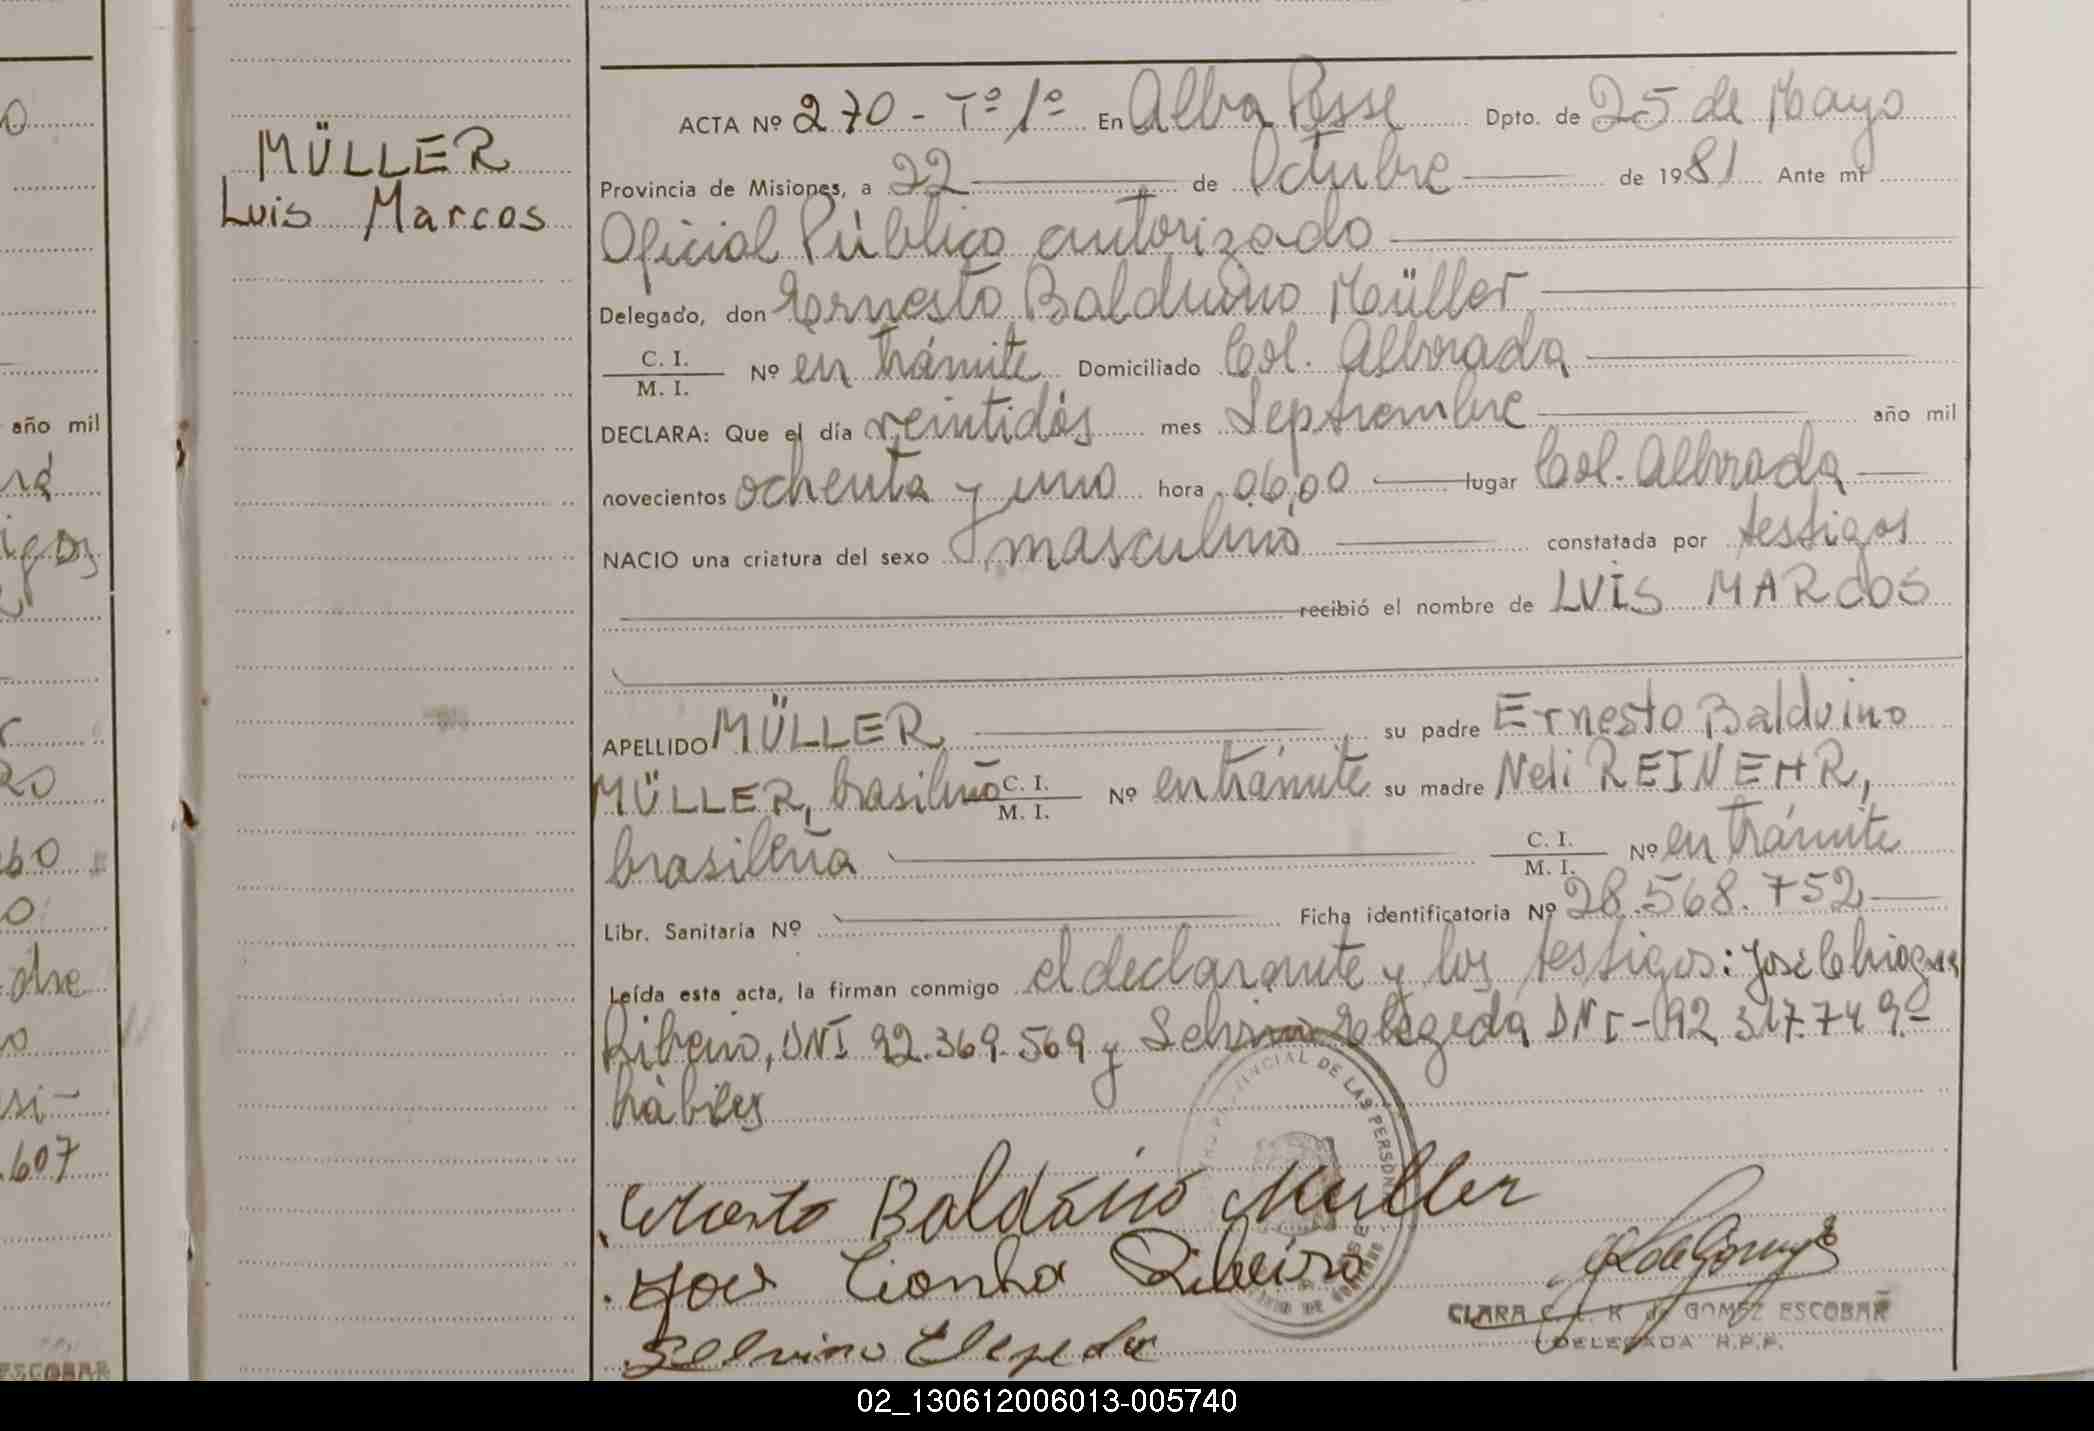 MÜLLER
Luis Marcos
año mil
ACTA Nº 270 - Tº 1º En Alba Posse Dpto. de 25 de Mayo
Provincia de Misiones, a 22 de Octubre de 1981 Ante mí
Oficial Público autorizado
Delegado, don Ernesto Balduino Müller
C. I.
M. I.
Nº en trámite Domiciliado Col. Alborada
DECLARA: Que el día veintidós mes Septiembre año mil
novecientos ochenta y uno hora 06,00 lugar Col. Alborada
NACIO una criatura del sexo masculino constatada por testigos
recibió el nombre de LUIS MARCOS
APELLIDO MÜLLER su padre Ernesto Balduino
MÜLLER, brasileño C. I. M. I. Nº en trámite su madre Neli REINEHR,
brasileña C. I. M. I. Nº en trámite
Libr. Sanitaria Nº Ficha identificatoria Nº 28.568.752
Leída esta acta, la firman conmigo el declarante y los testigos: José
Ribeiro, DNI 92.369.569 y DNI-92 317.749.-
hábiles
Balduino Muller
Ribeiro
Selvino
CLARA C. L. K de GOMEZ ESCOBAR
DELEGADA R.P.P.
607
ESCOBAR
02_130612006013-005740